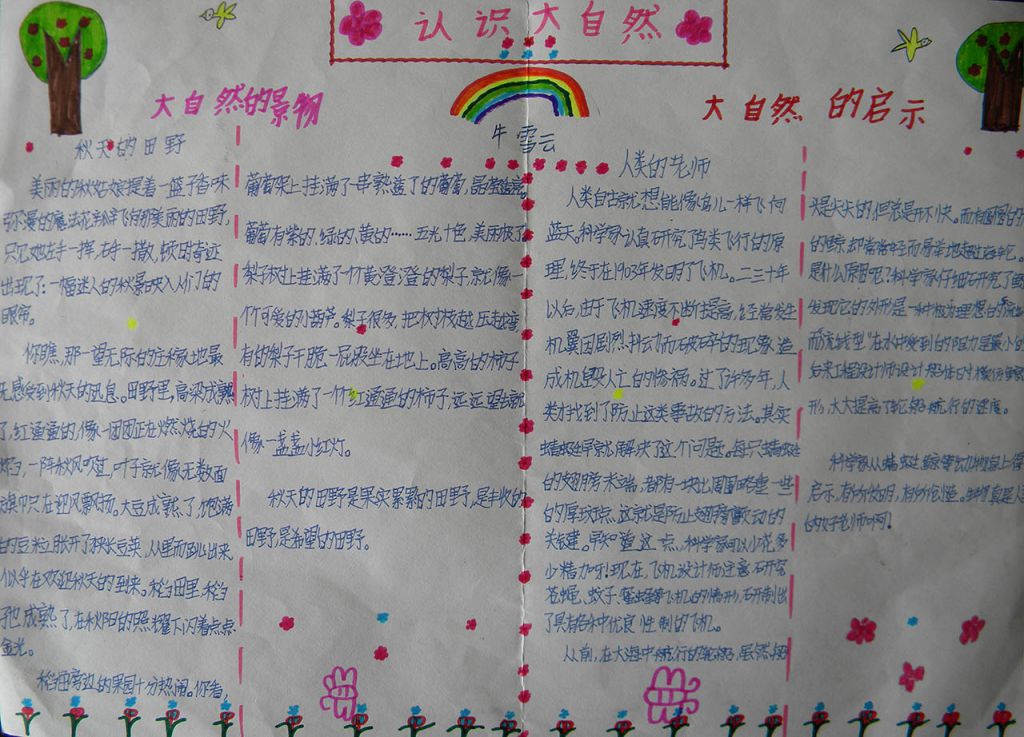 认识大自然
大自然的景物
秋天的田野
美丽的秋姑娘提着一篮子香味
弥漫的魔法花瓣飞向那美丽的田野,
只见她左手一挥,右手一撒,秋的奇迹
出现了:一幅迷人的秋景映入人们的
眼帘。
你瞧,那一望无际的庄稼地最
先感受到秋天的讯息。田野里,高粱成熟
了,红通通的,像一团团正在燃烧的火
焰,一阵秋风吹过,叶子就像无数面
旗帜在迎风飘扬。大豆成熟了,饱满
的豆粒胀开了豆荚,从里面到出来
似乎在欢迎秋天的到来。稻田里,稻
子也成熟了,在秋阳的照耀下闪着点点
金光。
稻田旁边的果园十分热闹。你看,
葡萄架上挂满了一串串熟透了的葡萄,晶莹透亮。
葡萄有紫的、绿的、黄的……五光十色,美丽极了。
梨子树上挂满了一个个黄澄澄的梨子,就像一
个个可爱的小葫芦。梨子很多,把树枝越压越弯,
有的梨子干脆一屁股坐在地上。高高的柿子
树上挂满了一个个红通通的柿子,远远望去就
像一盏盏小红灯。
秋天的田野是果实累累的田野,是丰收的
田野,是希望的田野。
牛雪云
大自然的启示
人类的老师
人类自古就想能像鸟儿一样飞向
蓝天。科学家认真研究了鸟类飞行的原
理,终于在1903年发明了飞机。二三十年
以后,由于飞机速度不断提高,经常发生
机翼因剧烈抖动而破碎的现象,造
成机毁人亡的惨祸。过了许多年,人
类才找到了防止这类事故的方法。其实
蜻蜓早就解决了这个问题。每只蜻蜓
的翅膀末端,都有一块比周围略重一些
的厚斑点,这就是防止翅膀颤动的
关键。早知道这点,科学家可以少花多
少精力呀!现在,飞机设计师注意研究
苍蝇、蚊子、蜜蜂等飞机的情形,研制出
了具有各种优良性能的飞机。
从前,在大海中航行的轮船,虽然船
头是尖尖的,但总是开不快。而有圆圆的
的鲸,却常常轻而易举地超过轮船。
是什么原因呢?科学家仔细研究了鲸
发现它的外形是一种极为理想的
而流线型"在水中受到的阻力是最小的
后来工程设计师设计船体时模仿鲸
形,大大提高了轮船航行的速度。
科学家从蜻蜓、鲸等动物身上得
启示,有所发明,有所创造。生物真是人
的好老师啊!